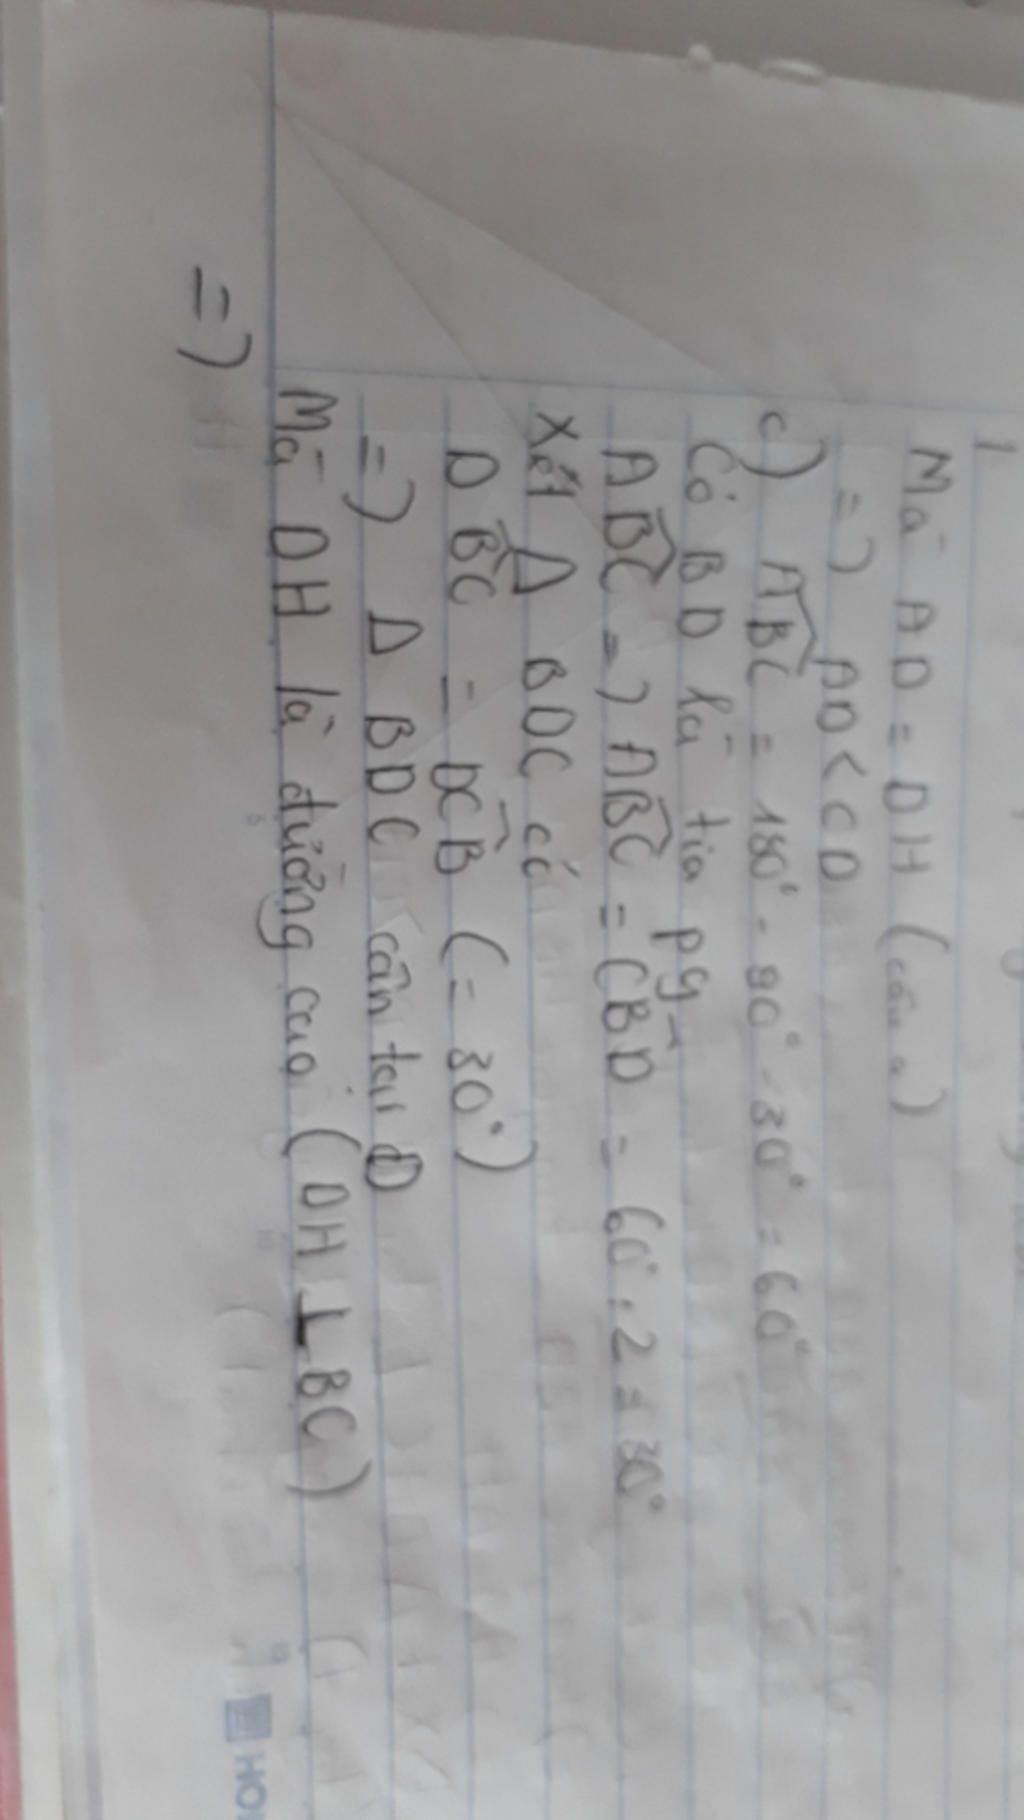 Mà AD = DH (câu a)
=> AD < CD
c) ABC = 180° - 90° - 30° = 60°
Có BD là tia pg
ABC => ABC = CBD = 60° : 2 = 30°
Xét Δ BDC có
DBC = DCB (= 30°)
=> Δ BDC cân tại D
Mà DH là đường cao (DH ⊥ BC)
=>
HON